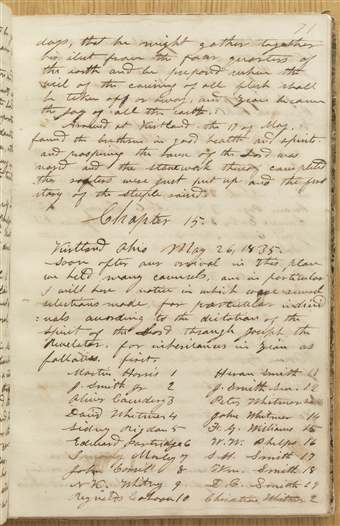 71
days, that he might gather together
his elect from the four quarters of
the earth and be prepared when the
veil of the covering of all flesh shall
be taken off or away, and Zion became
the joy of all the earth.
Arrived at Kirtland the 17 of May,
found the brethren in good health and spirits.
and prospering the house of the Lord was
and the stonework therof completed
the rafters were just put up and the first
story of the steeple raised
Chapter 15.
Kirtland Ohio May 26, 1835.
Soon after our arrival in this place
we held many councils, one in particular
I will here notice in which were several
selections made, for particular individ
:uals acording to the dictation of the
spirit of the Lord through Joseph the
Revelator. for inheritances in Zion as
follows. first.
Martin Harris 1 Hiram Smith 11
J. Smith Jr 2 J. Smith Sen. 12
Oliver Cowdery 3 Peter Whitmer 13
David Whitmer 4 John Whitmer 14
Sidney Rigdon 5 F. G. Williams 15
Edward Partridge 6 W. W. Phelps 16
Morley 7 S. H. Smith 17
John Corril 8 Wm. Smith 18
N. K. Whitney 9 D. C. Smith 19
Reynolds Cahoon 10 Christian Whitmer 2